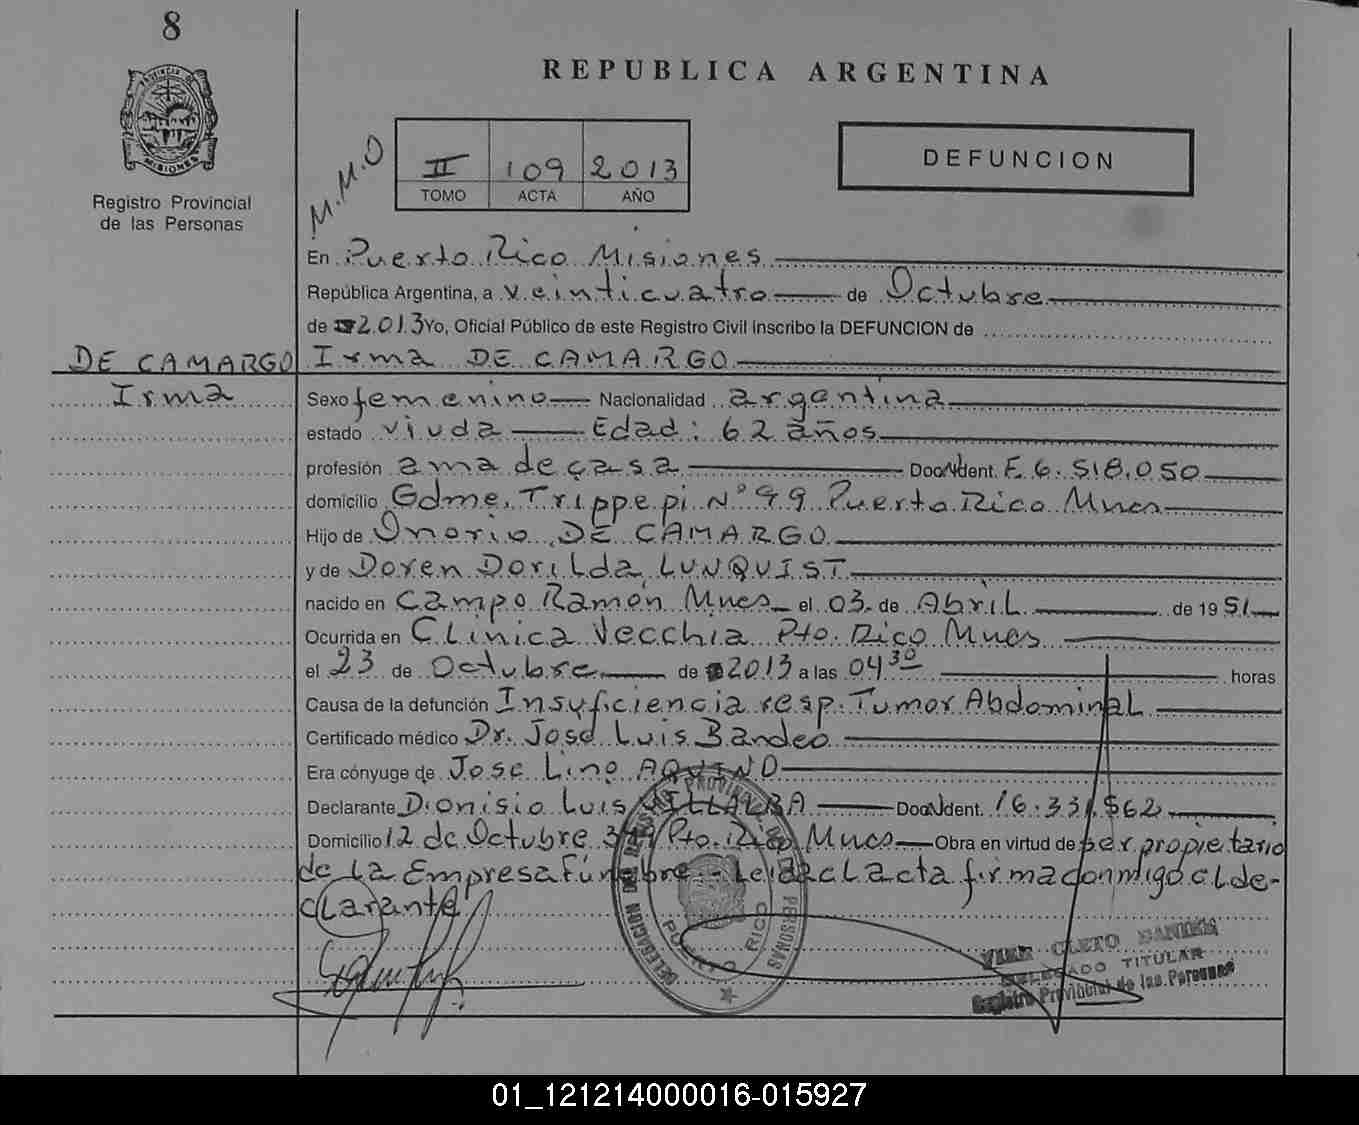 8
REPUBLICA ARGENTINA
PROVINCIA DE
MISIONES
Registro Provincial
de las Personas
M.M.O
II 109 2013
TOMO ACTA AÑO
DEFUNCION
En Puerto Rico Misiones
República Argentina, a veinticuatro de Octubre
de 2013 Yo, Oficial Público de este Registro Civil inscribo la DEFUNCION de
DE CAMARGO Irma DE CAMARGO
Irma Sexo femenino Nacionalidad argentina
estado viuda Edad: 62 años
profesión ama de casa Doc. Ident. F 6.518.050
domicilio Gdme. Trippepi Nº 99 Puerto Rico Mnes
Hijo de Onorio DE CAMARGO
y de Doren Dorilda LUNQUIST
nacido en Campo Ramón Mnes el 03 de Abril de 1951
Ocurrida en Clínica Vecchia Pto. Rico Mnes
el 23 de Octubre de 2013 a las 04 30 horas
Causa de la defunción Insuficiencia resp. Tumor Abdominal
Certificado médico Dr. José Luis Bandeo
Era cónyuge de Jose Lino AQUINO
Declarante Dionisio Luis VILLALBA Doc. Ident. 16.331.562
Domicilio 12 de Octubre Pto. Rico Mnes Obra en virtud de ser propietario
de la Empresa Fúnebre.- Leida el acta firma conmigo el de-
clarante
DELEGACION DEL REGISTRO PROVINCIAL DE LAS PERSONAS
PUERTO RICO
CLETO
DELEGADO TITULAR
Registro Provincial de las Personas
01_121214000016-015927